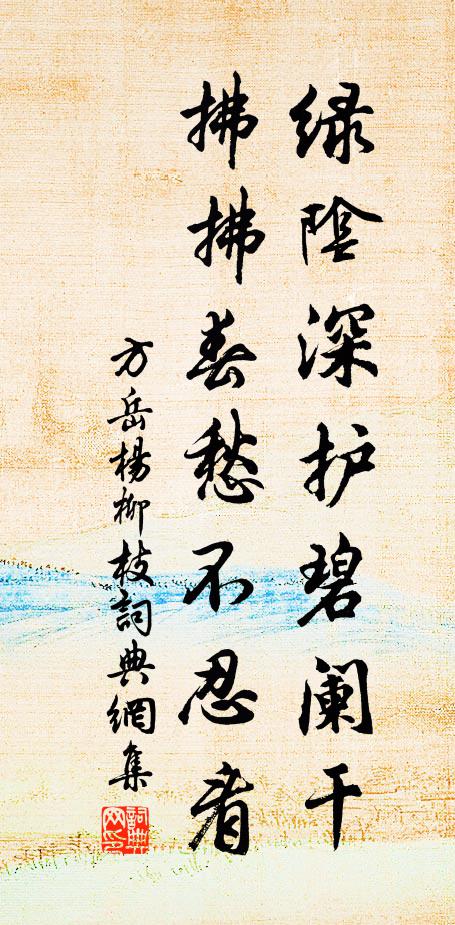 绿阴深护碧阑干
拂拂春愁不忍看
方岳杨柳枝詞典網集
詞典网印